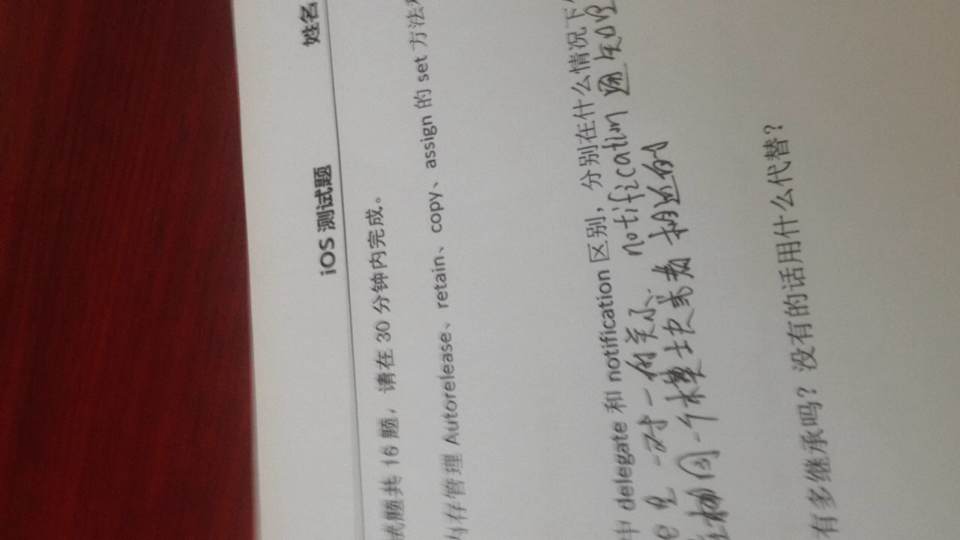 iOS 测试题 姓名
试题共 16 题，请在 30 分钟内完成。
内存管理 Autorelease、retain、copy、assign 的 set 方法
中 delegate 和 notification 区别，分别在什么情况下
e 是 一对一的关系. notification 通知是
在相同一个模块或者 相近的
有多继承吗？没有的话用什么代替？